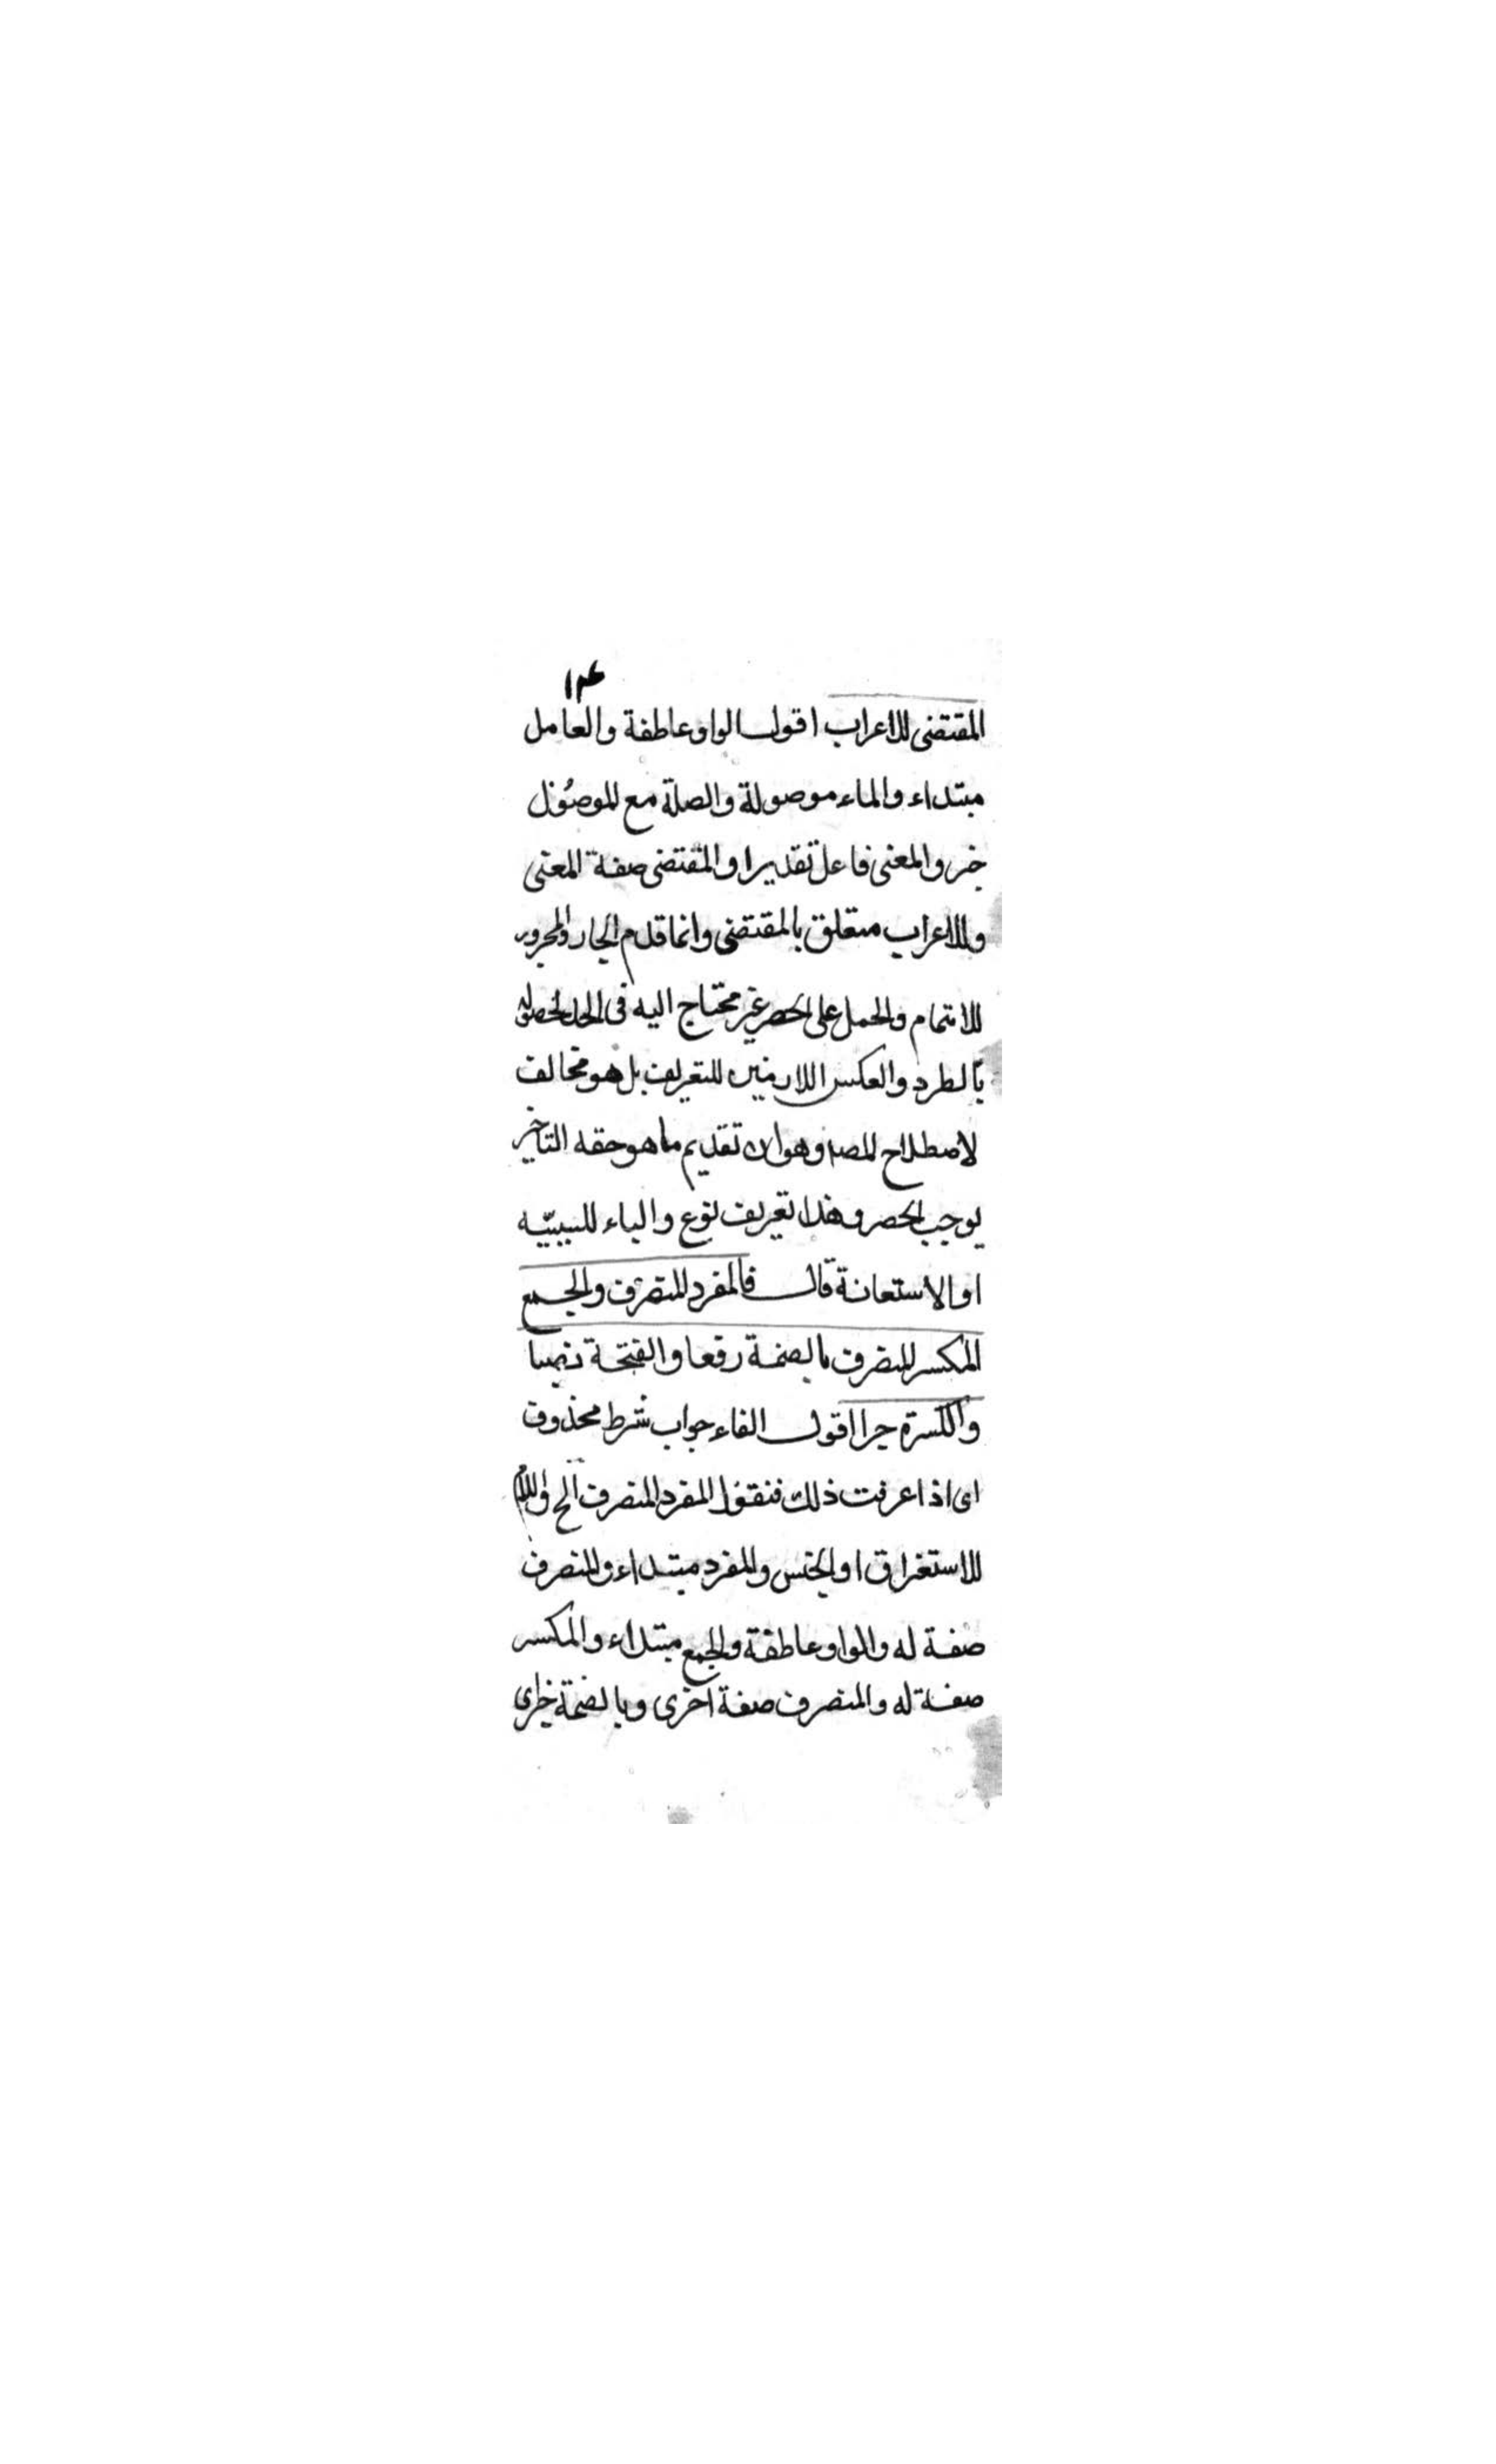 ١٣٤
المقتضى للاعراب اقول الواو عاطفة والعامل
مبتداء والماء موصولة والصلة مع الموصول
خبر والمعنى فاعل تقديرا والمقتضى صفة المعنى
وللاعراب متعلق بالمقتضى وانما قدم الجار والمجرور
للاهتمام والحمل على الحصر غير محتاج اليه فى الحد لحصوله
بالطرد والعكس اللازمين للتعريف بل هو مخالف
لاصطلاح المصنف وهو ان تقديم ما هو حقه التاخير
يوجب الحصر وهذا تعريف نوع والباء للسببيّه
او الاستعانة قال فالمفرد المنصرف والجمع
المكسر المنصرف بالضمة رفعا والفتحة نصبا
والكسرة جرا اقول الفاء جواب شرط محذوف
اى اذا عرفت ذلك فنقول المفرد المنصرف الخ واللام
للاستغراق او الجنس والمفرد مبتداء والمنصرف
صفة له والواو عاطفة والجمع مبتداء والمكسر
صفة له والمنصرف صفة اخرى وبالضمة خبر اى